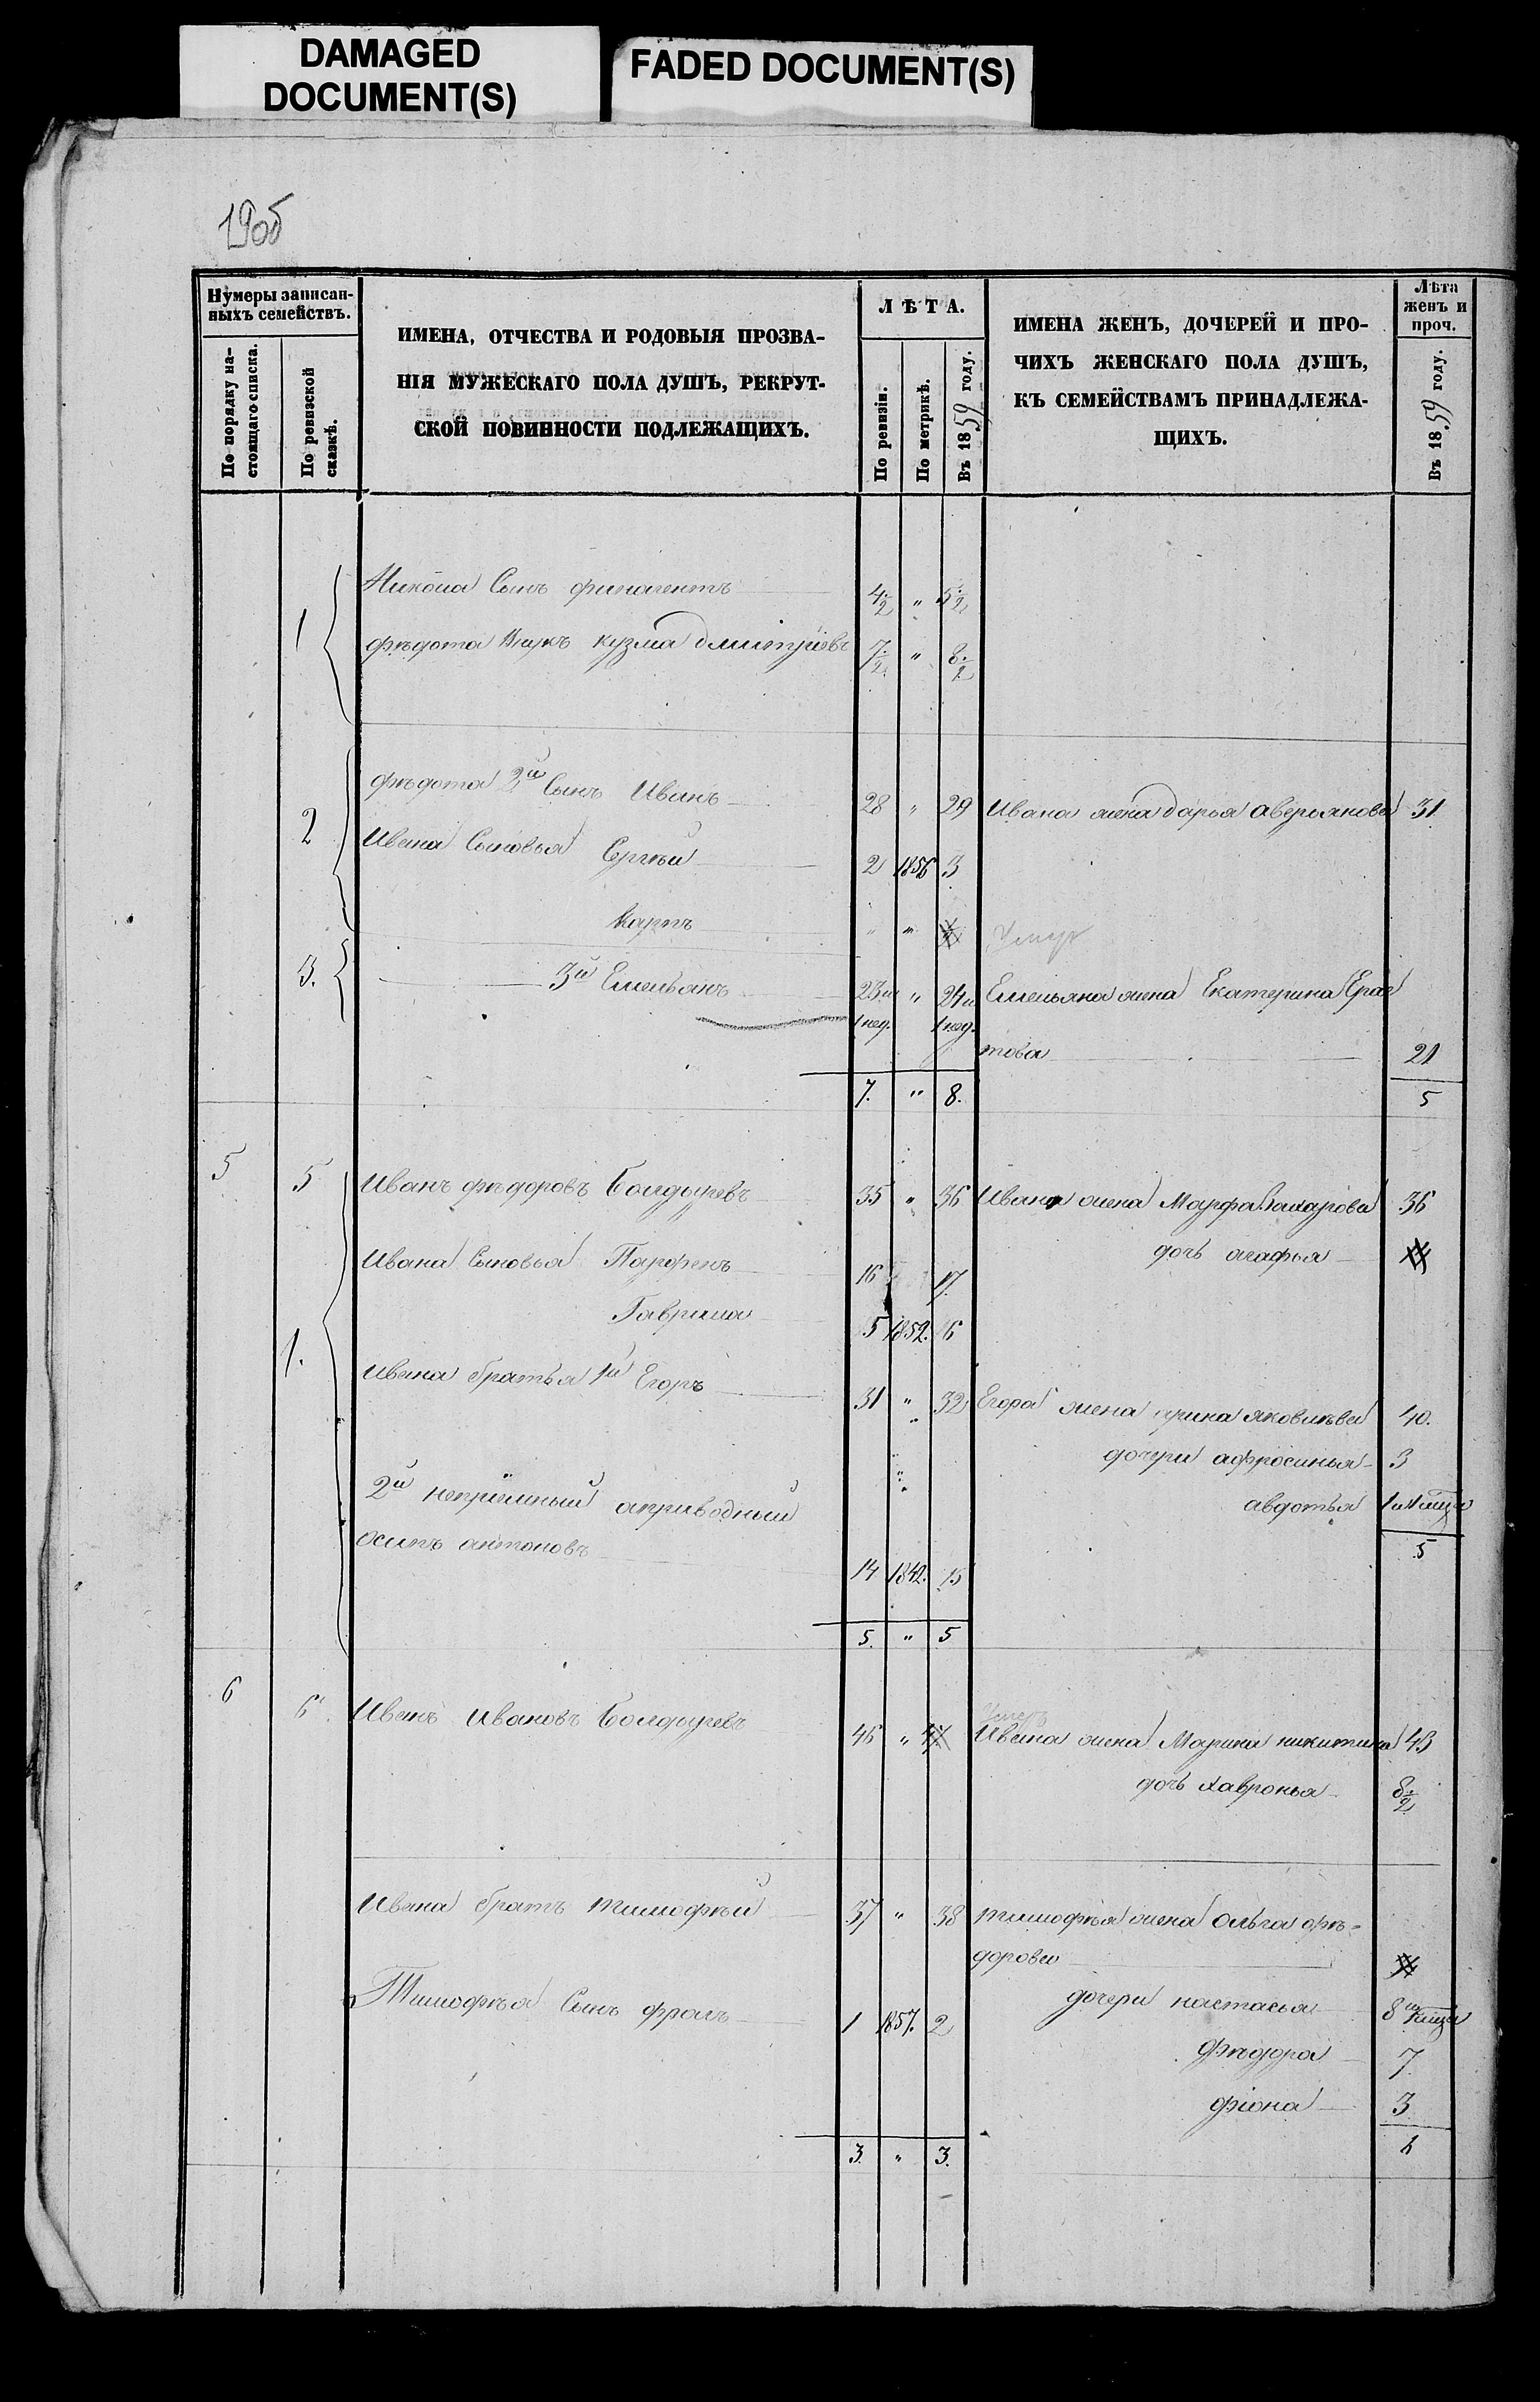 DAMAGED
DOCUMENT(S)
FADED DOCUMENT(S)
190б
Нумеры записан-
ныхъ семействъ.
По порядку на-
стоящаго списка.
По ревизской
сказкѣ.
ИМЕНА, ОТЧЕСТВА И РОДОВЫЯ ПРОЗВА-
НІЯ МУЖЕСКАГО ПОЛА ДУШЪ, РЕКРУТ-
СКОЙ ПОВИННОСТИ ПОДЛЕЖАЩИХЪ.
ЛѢТА.
По ревизіи.
По метрикѣ.
Въ 1859 году.
ИМЕНА ЖЕНЪ, ДОЧЕРЕЙ И ПРО-
ЧИХЪ ЖЕНСКАГО ПОЛА ДУШЪ,
КЪ СЕМЕЙСТВАМЪ ПРИНАДЛЕЖА-
ЩИХЪ.
Лѣта
женъ и
проч.
Въ 1859 году.
Сынъ 4½ " 5½
1 фѣдота Внукъ кузма дмитріевъ 7½ " 8½
фѣдота 2й Сынъ Иванъ 28 " 29 Ивана жена дарья аверьянова 31
2 Ивана Сыновья Сергѣй 2 1856 3
Карпъ " " Умеръ
3. 3й Емельянъ 23 и " 24 и Емельяна жена Екатерина Ерас
1 нед. 1 нед.
това 21
7. " 8. 5
5 5 Иванъ фѣдоровъ Болдыревъ 35 " 36 Ивана жена Марфа Захарова 36
дочь агафья
Ивана Сыновья Парфенъ 16 17
Гаврила 5 1852. 6
1. Ивана братья 1й Егоръ 31 " 32 Егора жена ирина яковлѣва 40.
дочери афросинья 3
2й непріемный априводный авдотья
5
осипъ антоновъ 14 1842. 15
5. " 5
6 6. Иванъ Ивановъ Болдыревъ 46 " Умеръ
Ивана жена Марина никитина 43
дочь хавронья 8½
Ивана братъ тимофѣй 37 " 38 тимофѣя жена Ольга фѣ-
дорова
Тимофѣя Сынъ фролъ 1 1857. 2 дочери настасья
фѣдора 7.
фіона 3
3. " 3.